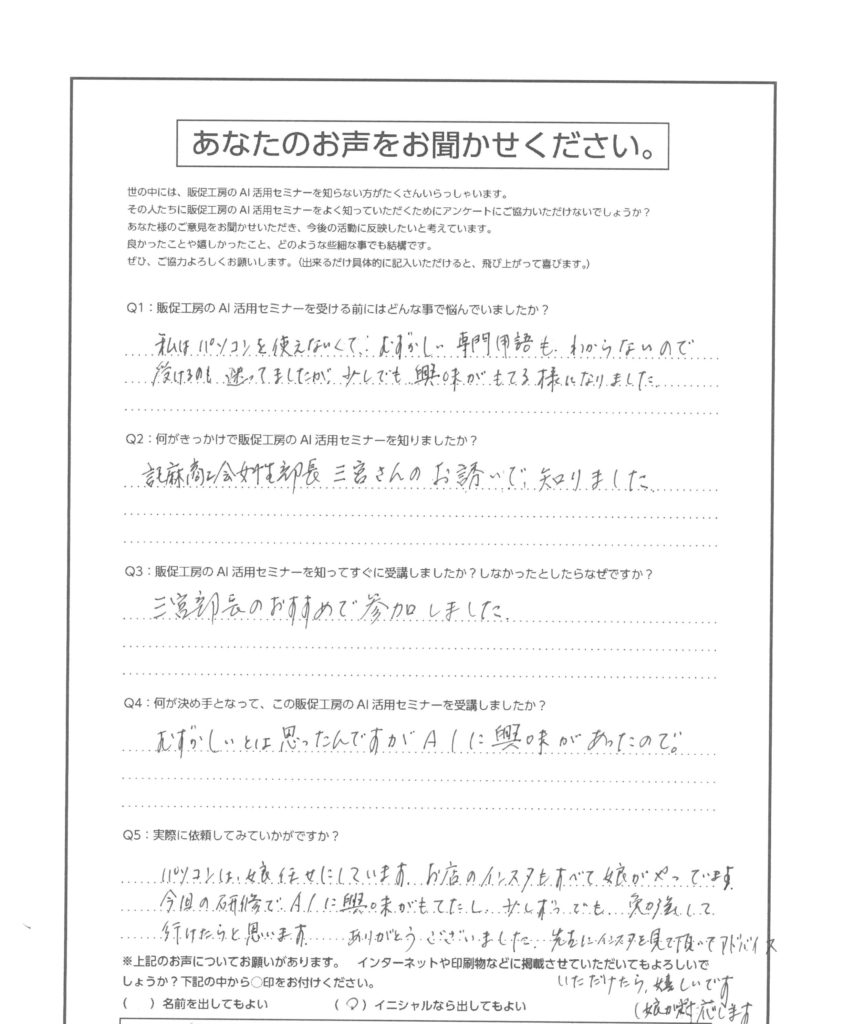 あなたのお声をお聞かせください。
世の中には、販促工房の AI 活用セミナーを知らない方がたくさんいらっしゃいます。
その人たちに販促工房の AI 活用セミナーをよく知っていただくためにアンケートにご協力いただけないでしょうか?
あなた様のご意見をお聞かせいただき、今後の活動に反映したいと考えています。
良かったことや嬉しかったこと、どのような些細な事でも結構です。
ぜひ、ご協力よろしくお願いします。(出来るだけ具体的に記入いただけると、飛び上がって喜びます。)
Q1:販促工房の AI 活用セミナーを受ける前にはどんな事で悩んでいましたか?
私は パソコンを使えないくて、むずかしい 専門用語も わからないので
受けるのも 迷ってましたが、少しでも 興味がもてる様になりました。
Q2:何がきっかけで販促工房の AI 活用セミナーを知りましたか?
託麻商工会女性部長 三宮さんの お誘いで、知りました。
Q3:販促工房の AI 活用セミナーを知ってすぐに受講しましたか?しなかったとしたらなぜですか?
三宮部長のおすすめで参加しました。
Q4:何が決め手となって、この販促工房の AI 活用セミナーを受講しましたか?
むずかしいとは思ったんですが AIに興味があったので。
Q5:実際に依頼してみていかがですか?
パソコンは、娘任せにしています。お店のインスタもすべて娘がやっています。
今回の研修でAIに興味がもてたし、少しずつでも 勉強して
行けたらと思います。 ありがとうございました。先生にインスタを見て頂いてアドバイス
いただけたら、嬉しいです
(娘が対応します
※上記のお声についてお願いがあります。 インターネットや印刷物などに掲載させていただいてもよろしいで
しょうか?下記の中から○印をお付けください。
( )名前を出してもよい (○)イニシャルなら出してもよい